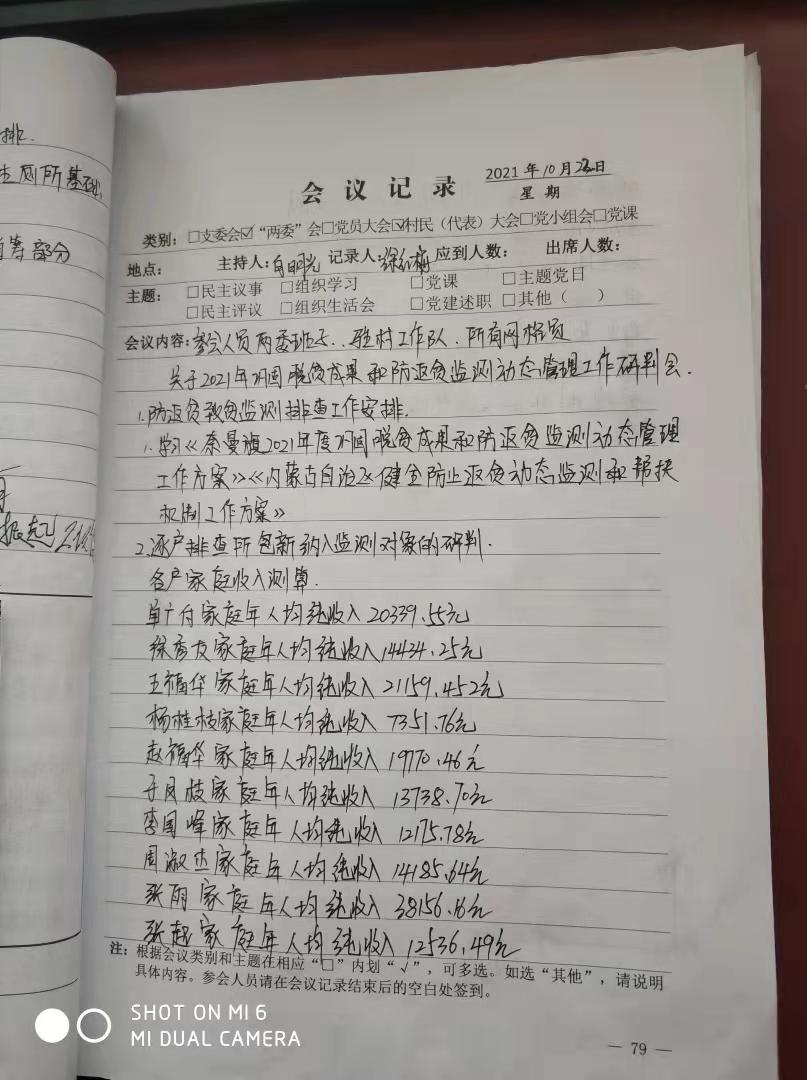 排.
生厕所基础
等部分
振起
会议记录
2021年10月23日
星期
类别：□支委会☑“两委”会□党员大会☑村民（代表）大会□党小组会□党课
地点： 主持人：白明光 记录人：徐红梅 应到人数： 出席人数：
主题：□民主议事 □组织学习 □党课 □主题党日
□民主评议 □组织生活会 □党建述职 □其他（ ）
会议内容：参会人员两委班子..驻村工作队.所有网格员
关于2021年巩固脱贫成果和防返贫监测动态管理工作研判会.
1.防返贫致贫监测排查工作安排.
1.学习《奈曼旗2021年度巩固脱贫成果和防返贫监测动态管理
工作方案》《内蒙古自治区健全防止返贫动态监测和帮扶
机制工作方案》
2.逐户排查所包新纳入监测对象的研判.
各户家庭收入测算.
单广付家庭年人均纯收入20339.55元
徐彦友家庭年人均纯收入14434.25元
王福华家庭年人均纯收入21159.452元
杨桂枝家庭年人均纯收入7351.76元
赵福华家庭年人均纯收入19770.46元
于凤枝家庭年人均纯收入13738.70元
李国峰家庭年人均纯收入12175.78元
周淑杰家庭年人均纯收入14185.64元
张丽家庭年人均纯收入38156.16元
张起家庭年人均纯收入12536.49元
注：根据会议类别和主题在相应“□”内划“√”，可多选。如选“其他”，请说明
具体内容。参会人员请在会议记录结束后的空白处签到。
— 79 —
SHOT ON MI 6
MI DUAL CAMERA